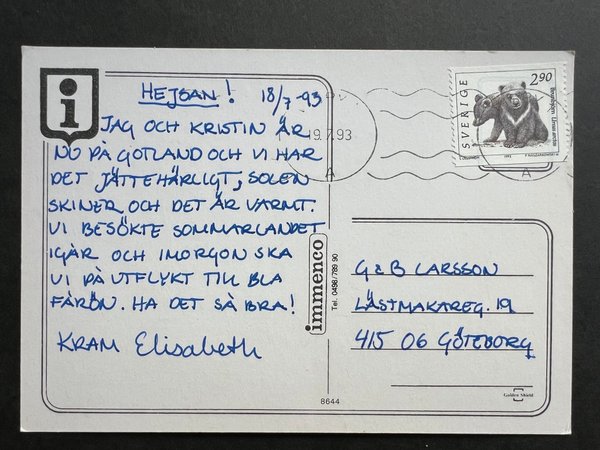 i
HEJSAN! 18/7-93
JAG OCH KRISTIN ÄR
NU PÅ GOTLAND OCH VI HAR
DET JÄTTEHÄRLIGT, SOLEN
SKINER OCH DET ÄR VARMT.
VI BESÖKTE SOMMARLANDET
IGÅR OCH IMORGON SKA
VI PÅ UTFLYKT TILL BLA
FÅRÖN. HA DET SÅ BRA!
KRAM Elisabeth
19.7.93
A
A
SVERIGE
2.90
Brunbjörn Ursus arctos
immenco
Tel. 0498/789 90
G & B LARSSON
LÄSTMAKAREG. 19
415 06 GÖTEBORG
Golden Shield
8644